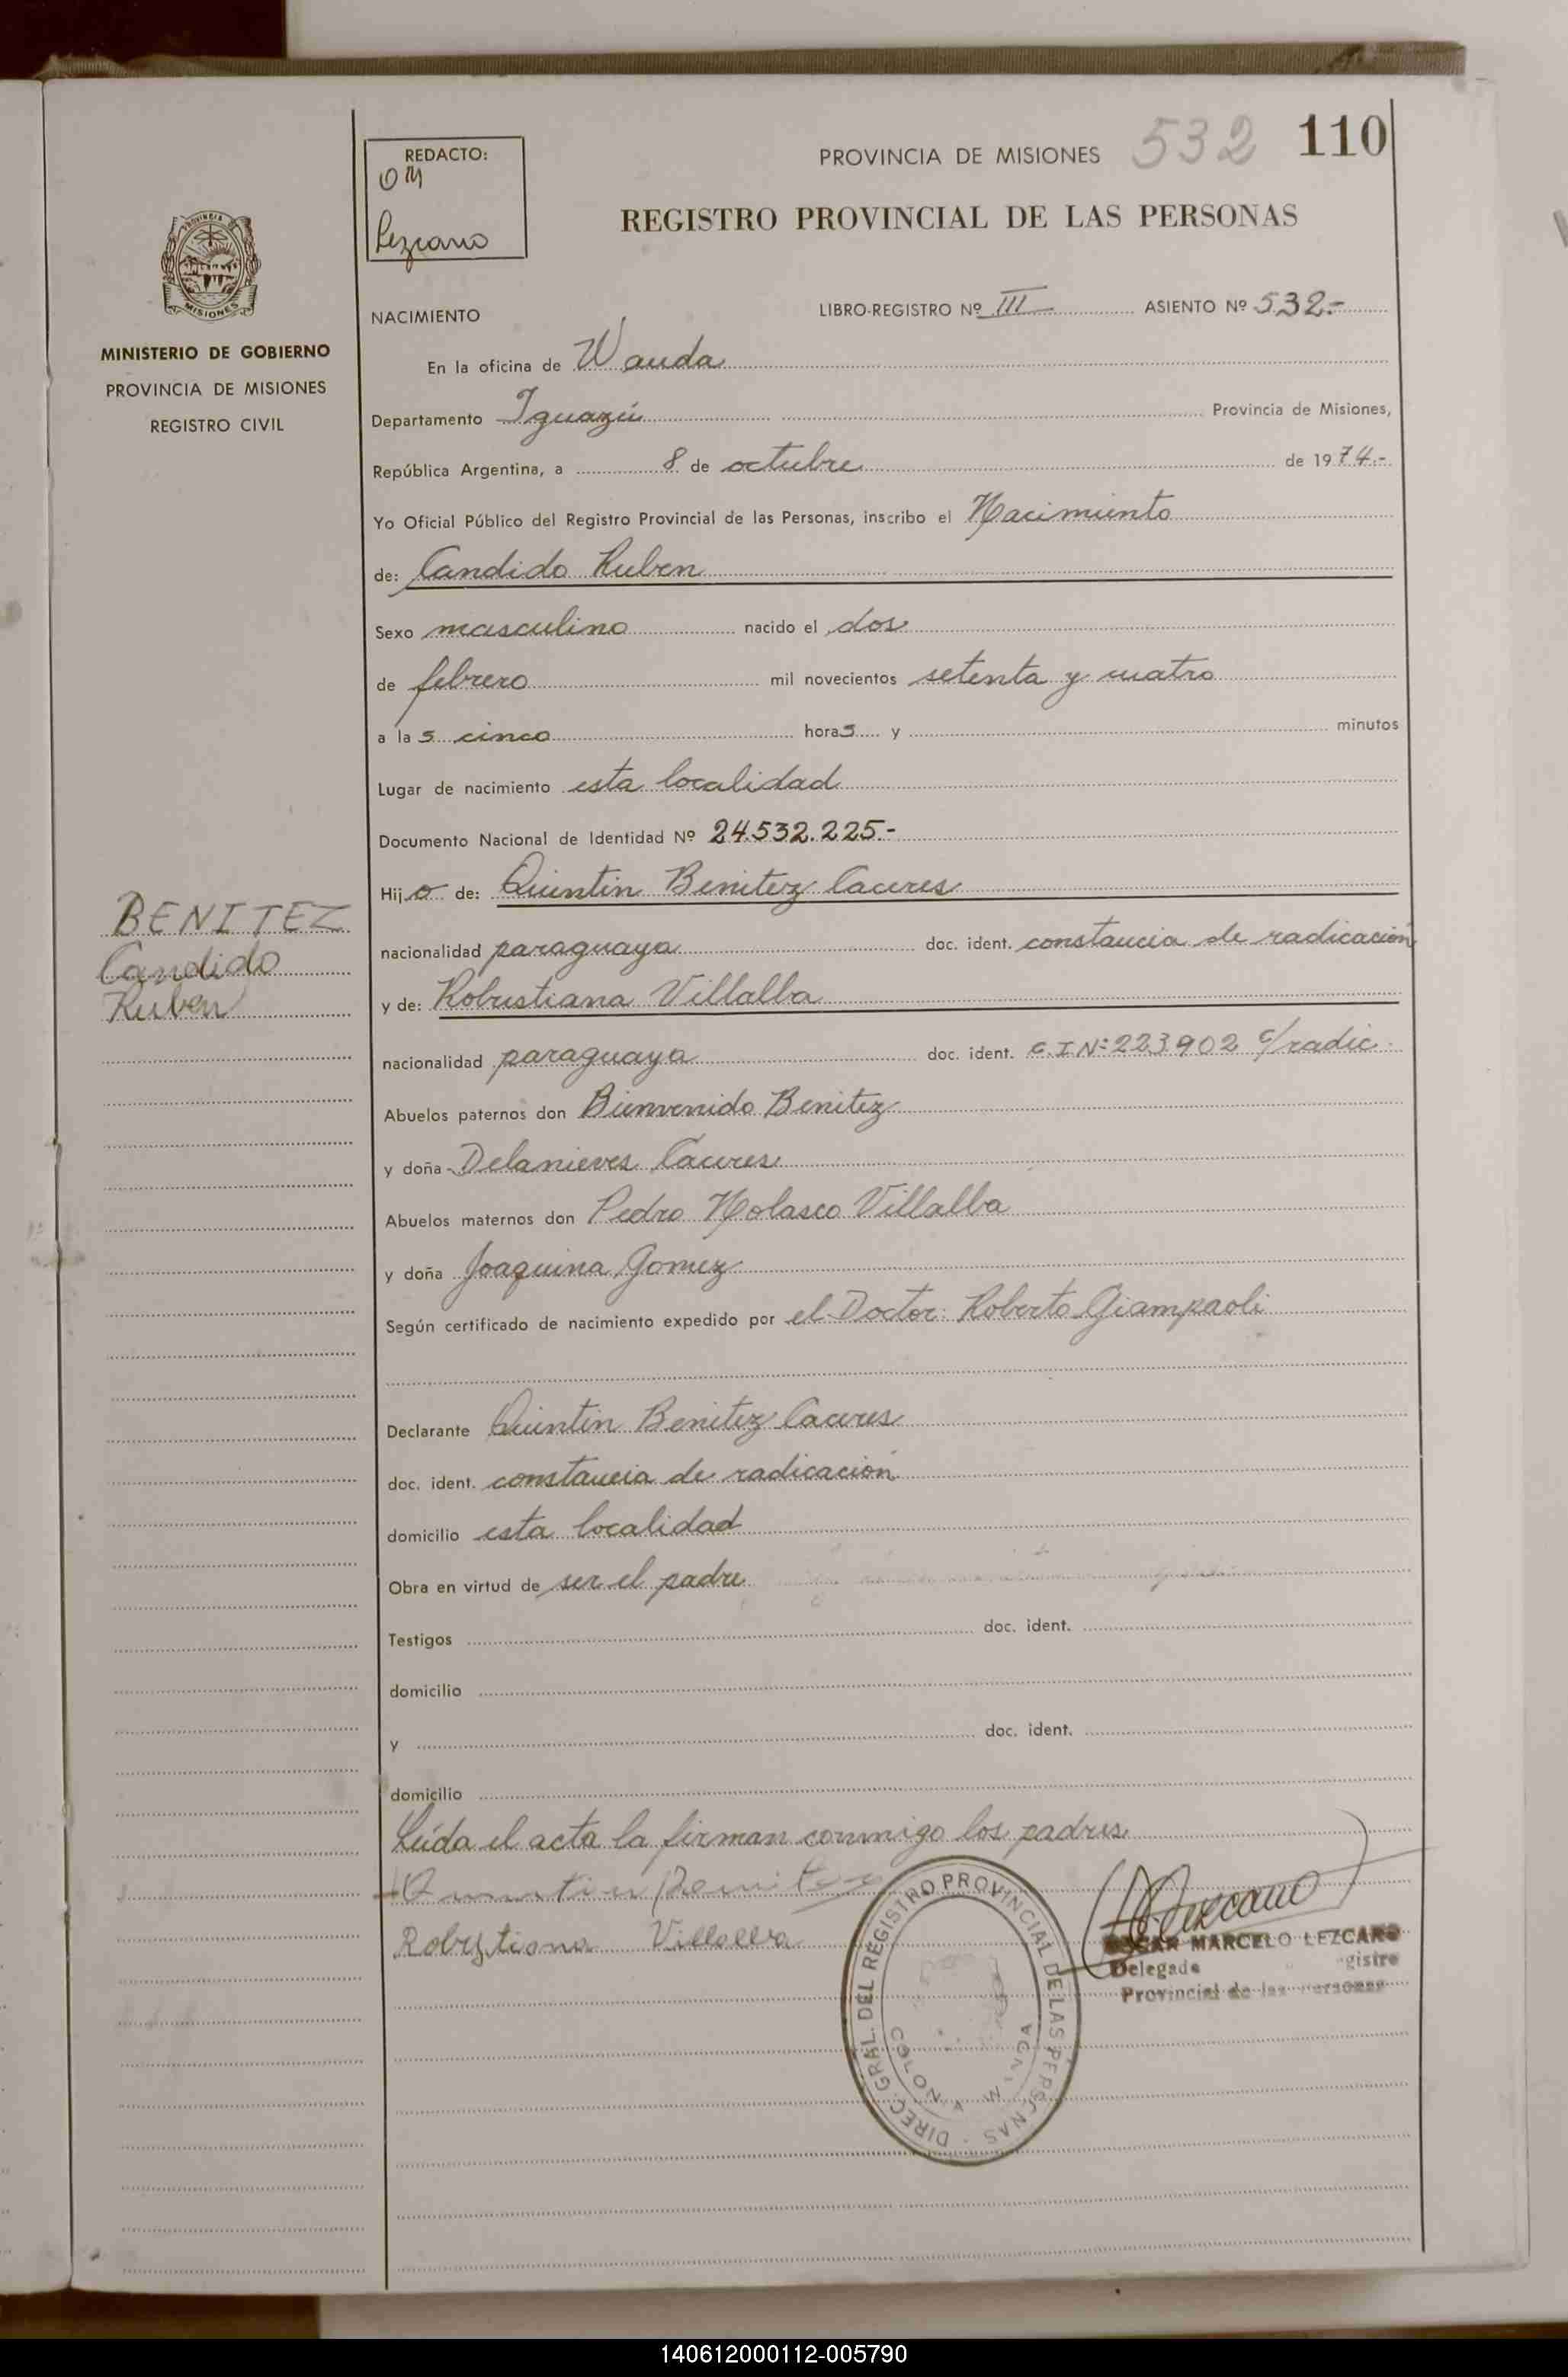 PROVINCIA DE MISIONES 532 110
REDACTO:
OM
Lezcano
REGISTRO PROVINCIAL DE LAS PERSONAS
PROVINCIA
MISIONES
MINISTERIO DE GOBIERNO
PROVINCIA DE MISIONES
REGISTRO CIVIL
NACIMIENTO LIBRO-REGISTRO Nº III ASIENTO Nº 532.-
En la oficina de Wanda
Departamento Iguazú Provincia de Misiones,
República Argentina, a 8 de octubre de 1974.-
Yo Oficial Público del Registro Provincial de las Personas, inscribo el Nacimiento
de: Candido Ruben
Sexo masculino nacido el dos
de febrero mil novecientos setenta y cuatro
a las cinco horas y minutos
Lugar de nacimiento esta localidad
Documento Nacional de Identidad Nº 24.532.225-
Hijo de: Quintin Benitez Caceres
BENITEZ
Candido
Ruben
nacionalidad paraguaya doc. ident. constancia de radicación
y de: Robustiana Villalba
nacionalidad paraguaya doc. ident. C.I Nº 223902 c/radic.
Abuelos paternos don Bienvenido Benitez
y doña Delanieves Caceres
Abuelos maternos don Pedro Nolasco Villalba
y doña Joaquina Gomez
Según certificado de nacimiento expedido por el Doctor: Roberto Giampaoli
Declarante Quintin Benitez Caceres
doc. ident. constancia de radicación
domicilio esta localidad
Obra en virtud de ser el padre
Testigos doc. ident.
domicilio
y doc. ident.
domicilio
Leída el acta la firman conmigo los padres
Quintin Benitez
Robustiana Villalba
Lezcano
OSCAR MARCELO LEZCANO
Delegado Registro
Provincial de las Personas
DIREC. GRAL. DEL REGISTRO PROVINCIAL DE LAS PERSONAS
COLONIA WANDA
140612000112-005790